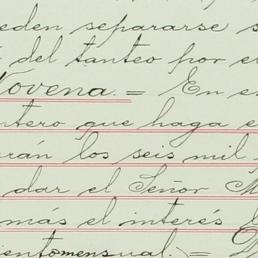 eden separarse s
del tanteo por e
Novena. = En e
ntero que haga e
arán los seis mil
dar el Señor M
más el interés l
ientomensual.) = D